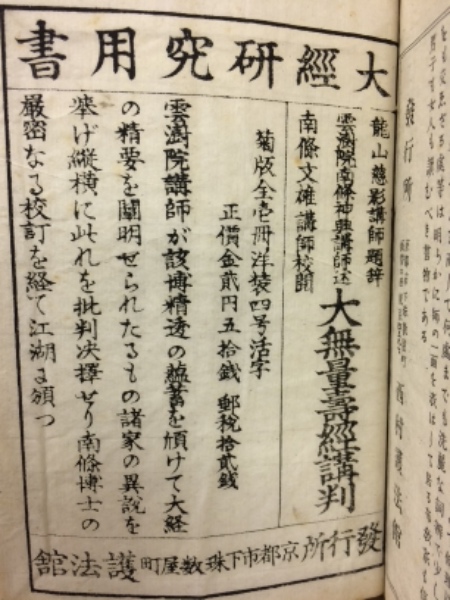 大經研究用書
龍山慈影講師題辞
雲澍院南條神興講師述
南條文雄講師校閲
大無量壽經講判
菊版全壱冊洋装四号活字
正價金貳円五拾銭 郵税拾貳銭
雲澍院講師が該博精透の蘊蓄を傾けて大経
の精要を闡明せられたるもの諸家の異説を
挙げ縦横に此れを批判决擇せり南條博士の
厳密なる校訂を経て江湖に頒つ
發行所 京都市下珠数屋町 護法舘
男子も女人も讀むべき書物である
發行所
西村護法舘